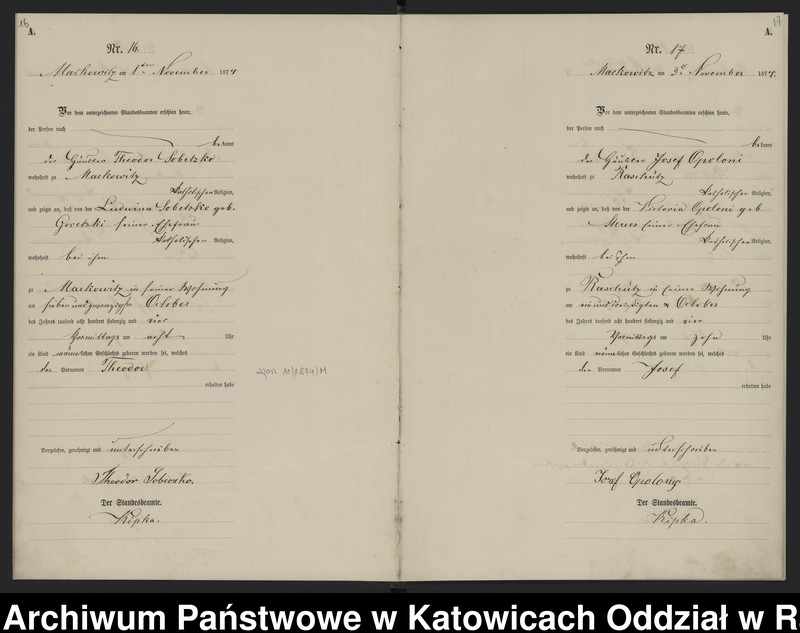 16
A.
Nr. 16.
Markowitz am 1ten November 1874
Vor dem unterzeichneten Standesbeamten erschien heute,
der Person nach
bekannt
der Häusler Theodor Sobetzko
wohnhaft zu Markowitz
katholischer Religion,
und zeigte an, daß von der Ludwina Sobetzko geb.
Goretzki seiner Ehefrau
katholischer Religion,
wohnhaft bei ihm
zu Markowitz in seiner Wohnung
am sieben und zwanzigsten October
des Jahres tausend acht hundert siebenzig und vier
Vormittags um acht Uhr
ein Kind männlichen Geschlechts geboren worden sei, welches
den Vornamen Theodor
erhalten habe
zgon 11/1874/M
Vorgelesen, genehmigt und unterschrieben
Theodor Sobeczko.
Der Standesbeamte.
Kipka.
17.
A.
Nr. 17
Markowitz am 3t November 1874.
Vor dem unterzeichneten Standesbeamten erschien heute,
der Person nach
bekannt
der Häusler Josef Opoloni
wohnhaft zu Raschütz
katholischer Religion,
und zeigte an, daß von der Victoria Opoloni geb.
seiner Ehefrau
katholischer Religion,
wohnhaft bei ihm
zu Raschütz in seiner Wohnung
am ein und dreißigten October
des Jahres tausend acht hundert siebenzig und vier
Vormittags um zehn Uhr
ein Kind männlichen Geschlechts geboren worden sei, welches
den Vornamen Josef
erhalten habe
Vorgelesen, genehmigt und unterschrieben
Josef Opolony.
Der Standesbeamte.
Kipka.
Archiwum Państwowe w Katowicach Oddział w R